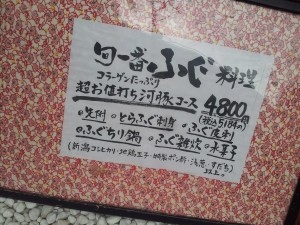 旬一番ふぐ料理
コラーゲンたっぷり
超お値打ち河豚コース 4800円
(税込5184円)
•先附 •とらふぐ刺身 •ふぐ唐揚
•ふぐちり鍋 •ふぐ雑炊 •氷菓子
(新潟コシヒカリ・地鶏玉子・特製ポン酢・浅葱・すだち)
以上。